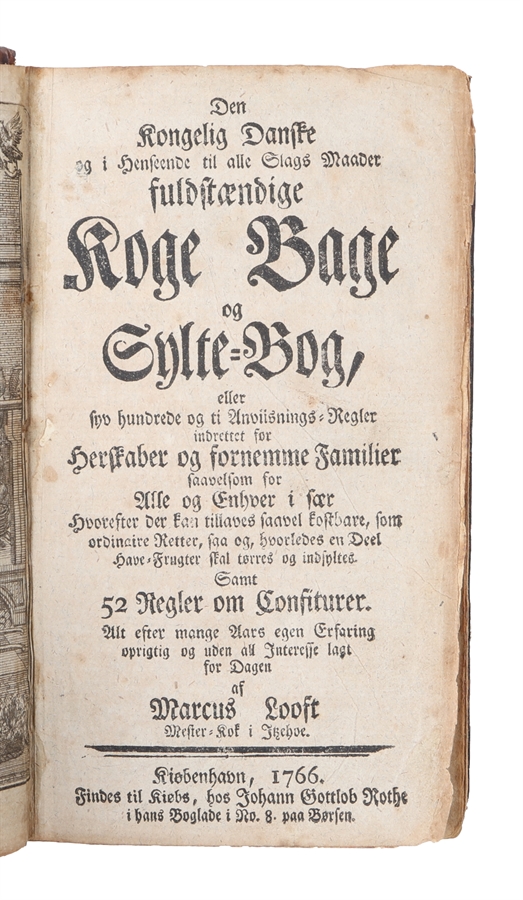 Den
Kongelig Danske
og i Henseende til alle Slags Maader
fuldstændige
Koge Bage
og
Sylte-Bog,
eller
syv hundrede og ti Anviisnings-Regler
indrettet for
Herskaber og fornemme Familier
saavelsom for
Alle og Enhver i sær
Hvorefter der kan tillaves saavel kostbare, som
ordinaire Retter, saa og, hvorledes en Deel
Have-Frugter skal tørres og indsyltes.
Samt
52 Regler om Confiturer.
Alt efter mange Aars egen Erfaring
oprigtig og uden all Interesse lagt
for Dagen
af
Marcus Looft
Mester-Kok i Itzehoe.
Kiøbenhavn, 1766.
Findes til Kiøbs, hos Johann Gottlob Rothe
i hans Boglade i No. 8. paa Børsen.